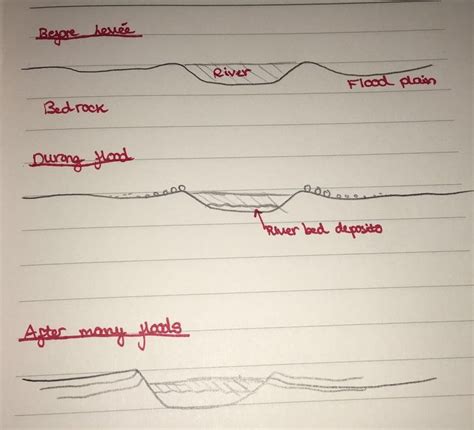 Before levée
River
Flood plain
Bedrock
During flood
River bed deposits
After many floods